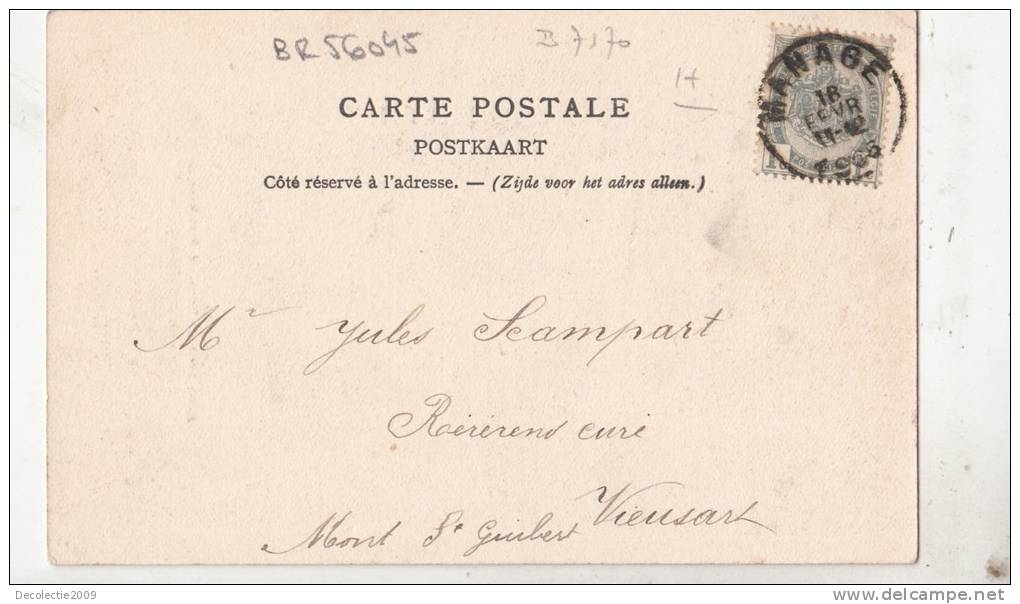 BR56045
B 7170
CARTE POSTALE
POSTKAART
Côté réservé à l'adresse. — (Zijde voor het adres alleen.)
MANAGE
18
FEVR
Mr Jules Scampart
Révérend curé
Vieusart
Mont St Guibert
Decolectie2009
www.delcampe.net